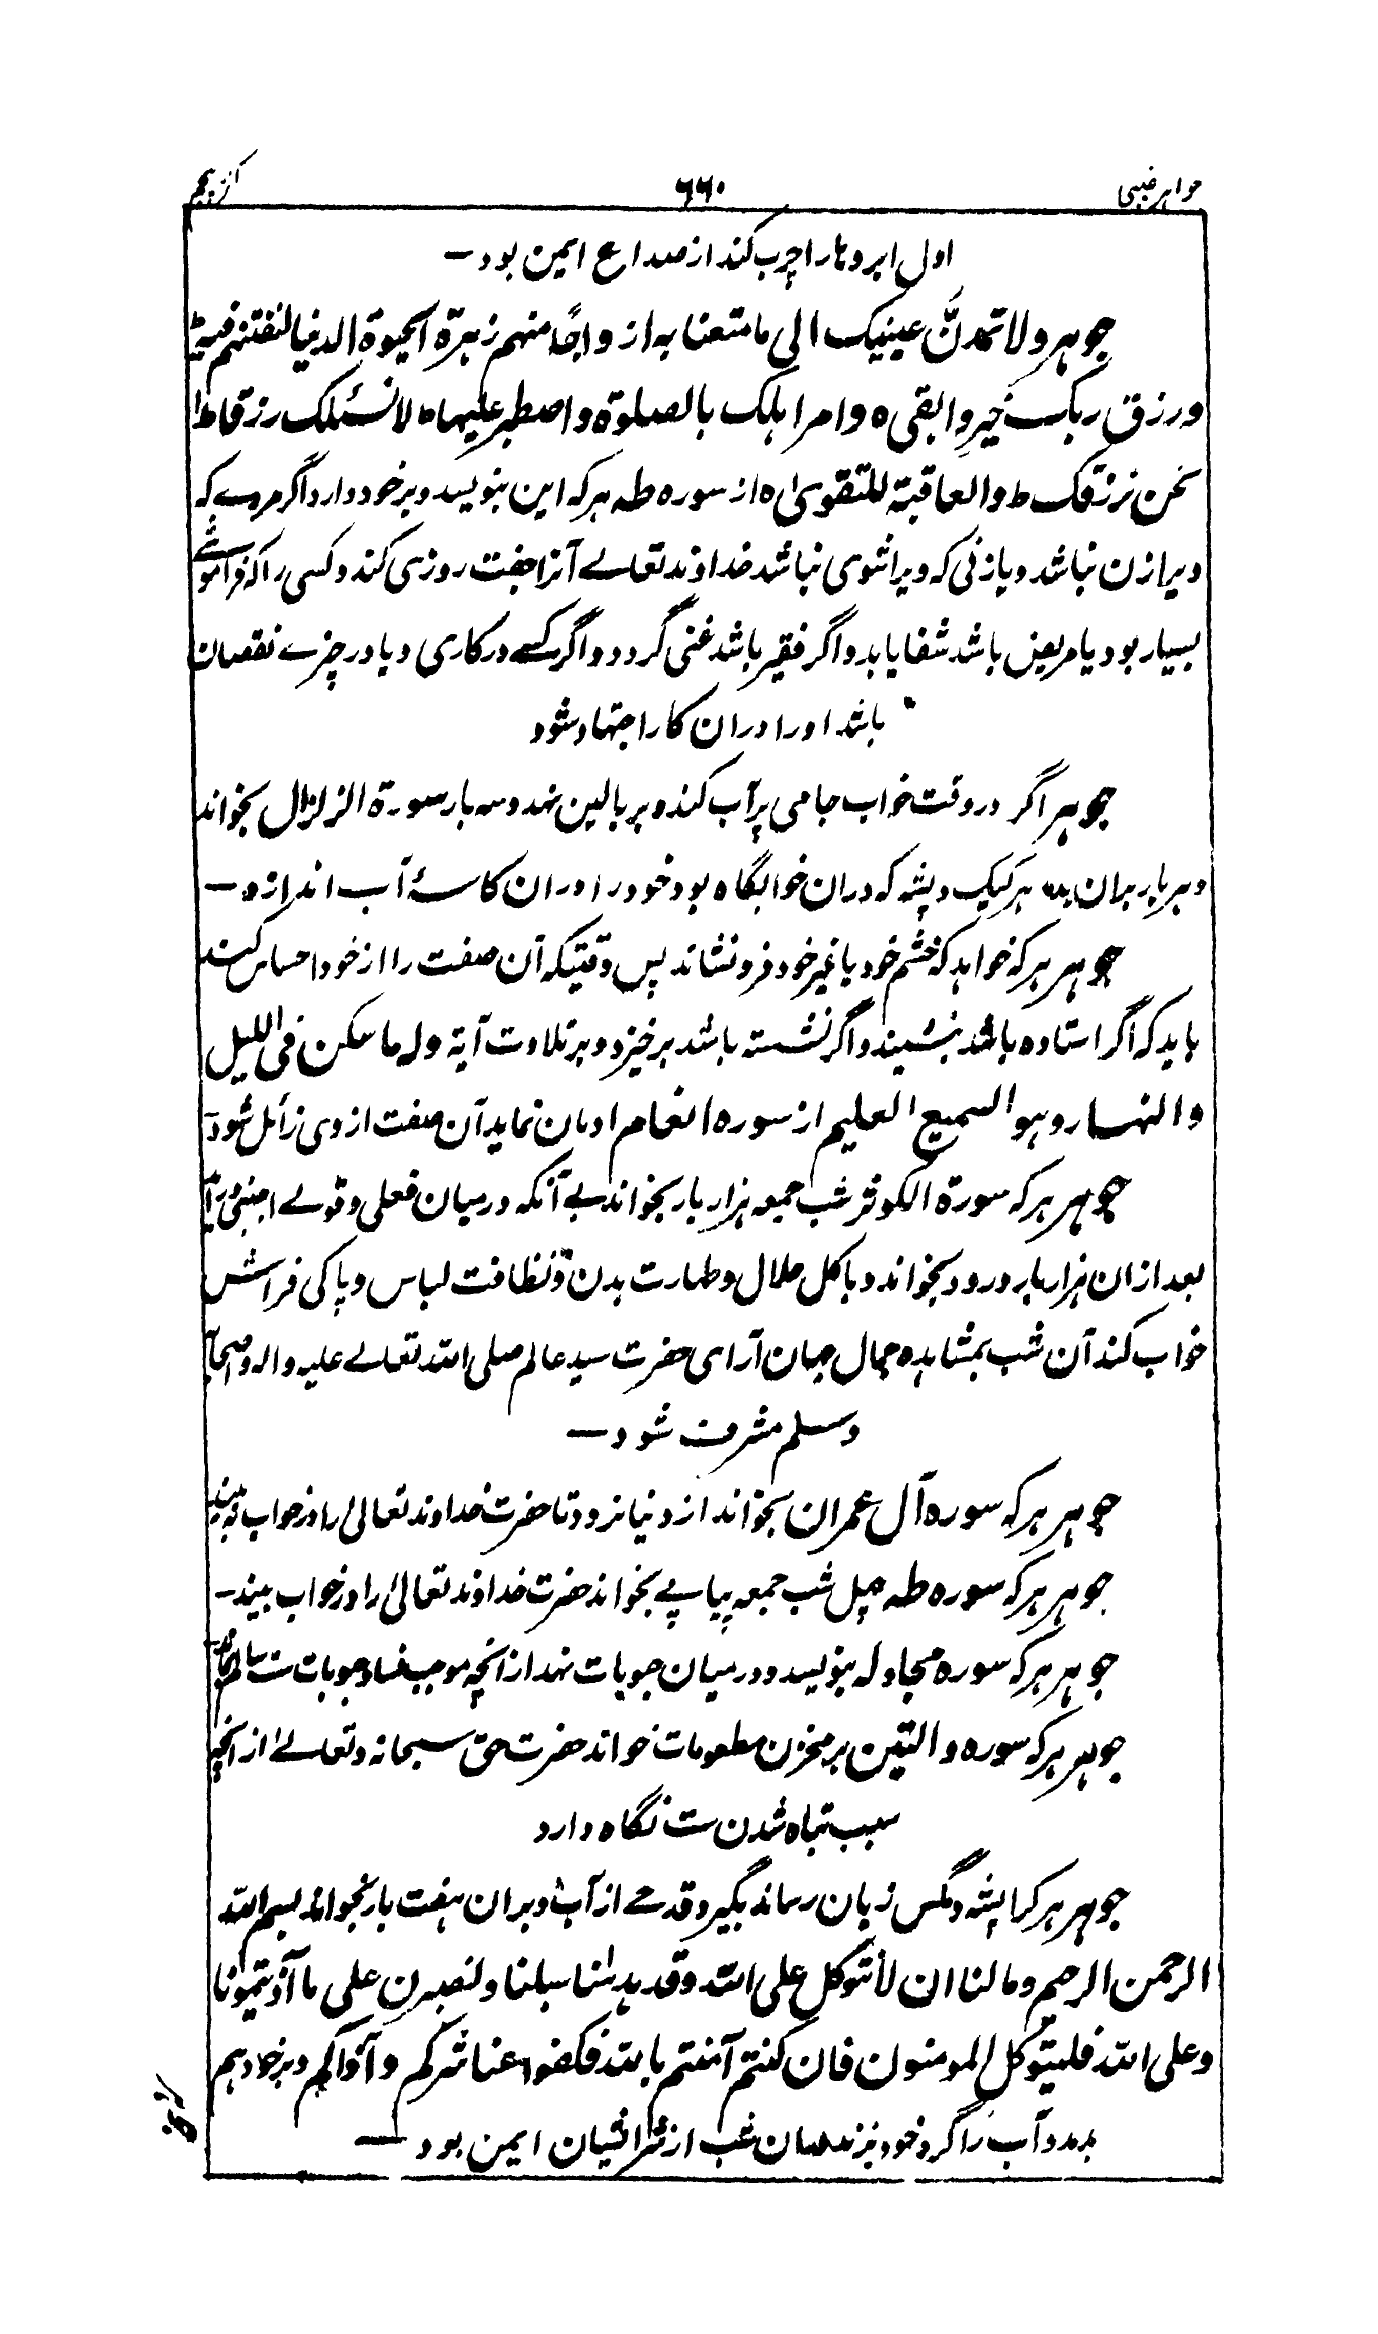 جواہر غیبی ۶۶۰
اول ابروہارا چرب کند از صداع ایمن بود –
جوہر ولا تمدنَّ عینیک الی ما متعنا بہ ازواجًا منہم زہرۃ الحیوۃ الدنیا لنفتنہم فیہ ط
ورزق ربک خیر وابقی ہ وامر اہلک بالصلوۃ واصطبر علیہا ط لا نسئلک رزقا ط
نحن نرزقک ط والعاقبۃ للتقویٰ ہ از سورہ طہ ہر کہ این بنویسد و بر خود دارد اگر مردے کہ
ویرا زن نباشد و یا زنی کہ ویرا شوی نباشد خداوند تعالے آنرا جفت روزی کند و کسی را کہ فراموشے
بسیار بود یا مریض باشد شفا یابد و اگر فقیر باشد غنی گردد و اگر کسے در کاری و یا در چیزے نقصان
باشد اورا دران کار اجتہاد شود
جوہر اگر در وقت خواب جامی پر آب کند و بر بالین نہد و سہ بار سورۃ الزلزال بخواند
و ہر بار بران دمد ہر کیک و پشہ کہ دران خوابگاہ بود خود را دران کاسۂ آب اندازد –
جوہر ہر کہ خواہد کہ خشم خود یا غیر خود فرو نشاند پس وقتیکہ آن صفت را از خود احساس کند
باید کہ اگر استادہ باشد بنشیند و اگر نشستہ باشد بر خیزد و بر تلاوت آیۃ ولہ ما سکن فی اللیل
والنہار وہو السمیع العلیم از سورہ انعام ادمان نماید آن صفت از وی زائل شود
جوہر ہر کہ سورۃ الکوثر شب جمعہ ہزار بار بخواند بے آنکہ در میان فعلی و قولے اجنبی در آید
بعد ازان ہزار بار درود بخواند و باکل حلال و طہارت بدن و نظافت لباس و پاکی فراش
خواب کند آن شب بمشاہدہ جمال جہان آرای حضرت سید عالم صلی اللہ تعالے علیہ والہ واصحابہ
وسلم مشرف شود –
جوہر ہر کہ سورہ آل عمران بخواند از دنیا نرود تا حضرت خداوند تعالیٰ را در خواب نہ بیند
جوہر ہر کہ سورہ طہ چہل شب جمعہ پیاپے بخواند حضرت خداوند تعالیٰ را در خواب بیند –
جوہر ہر کہ سورہ مجادلہ بنویسد و در میان حبوبات نہد از انچہ موجب فساد حبوبات ست سالم
جوہر ہر کہ سورہ والتین بر مخزن مطعومات خواند حضرت حق سبحانہ و تعالےٰ از انچہ
سبب تباہ شدن ست نگاہ دارد
جوہر ہر کرا پشہ و مگس زیان رساند بگیرد قدحے از آب و بران ہفت بار بخواند بسم اللہ
الرحمن الرحیم وما لنا ان لا نتوکل علی اللہ وقد ہدٰنا سبلنا ولنصبرن علی ما آذیتمونا
وعلی اللہ فلیتوکل المومنون فان کنتم آمنتم باللہ فکفوا عنا شرکم وآذاکم و بر خود ہم
بدمد و آب را گرد خود بزند ہمان شب از شر ایشان ایمن بود –